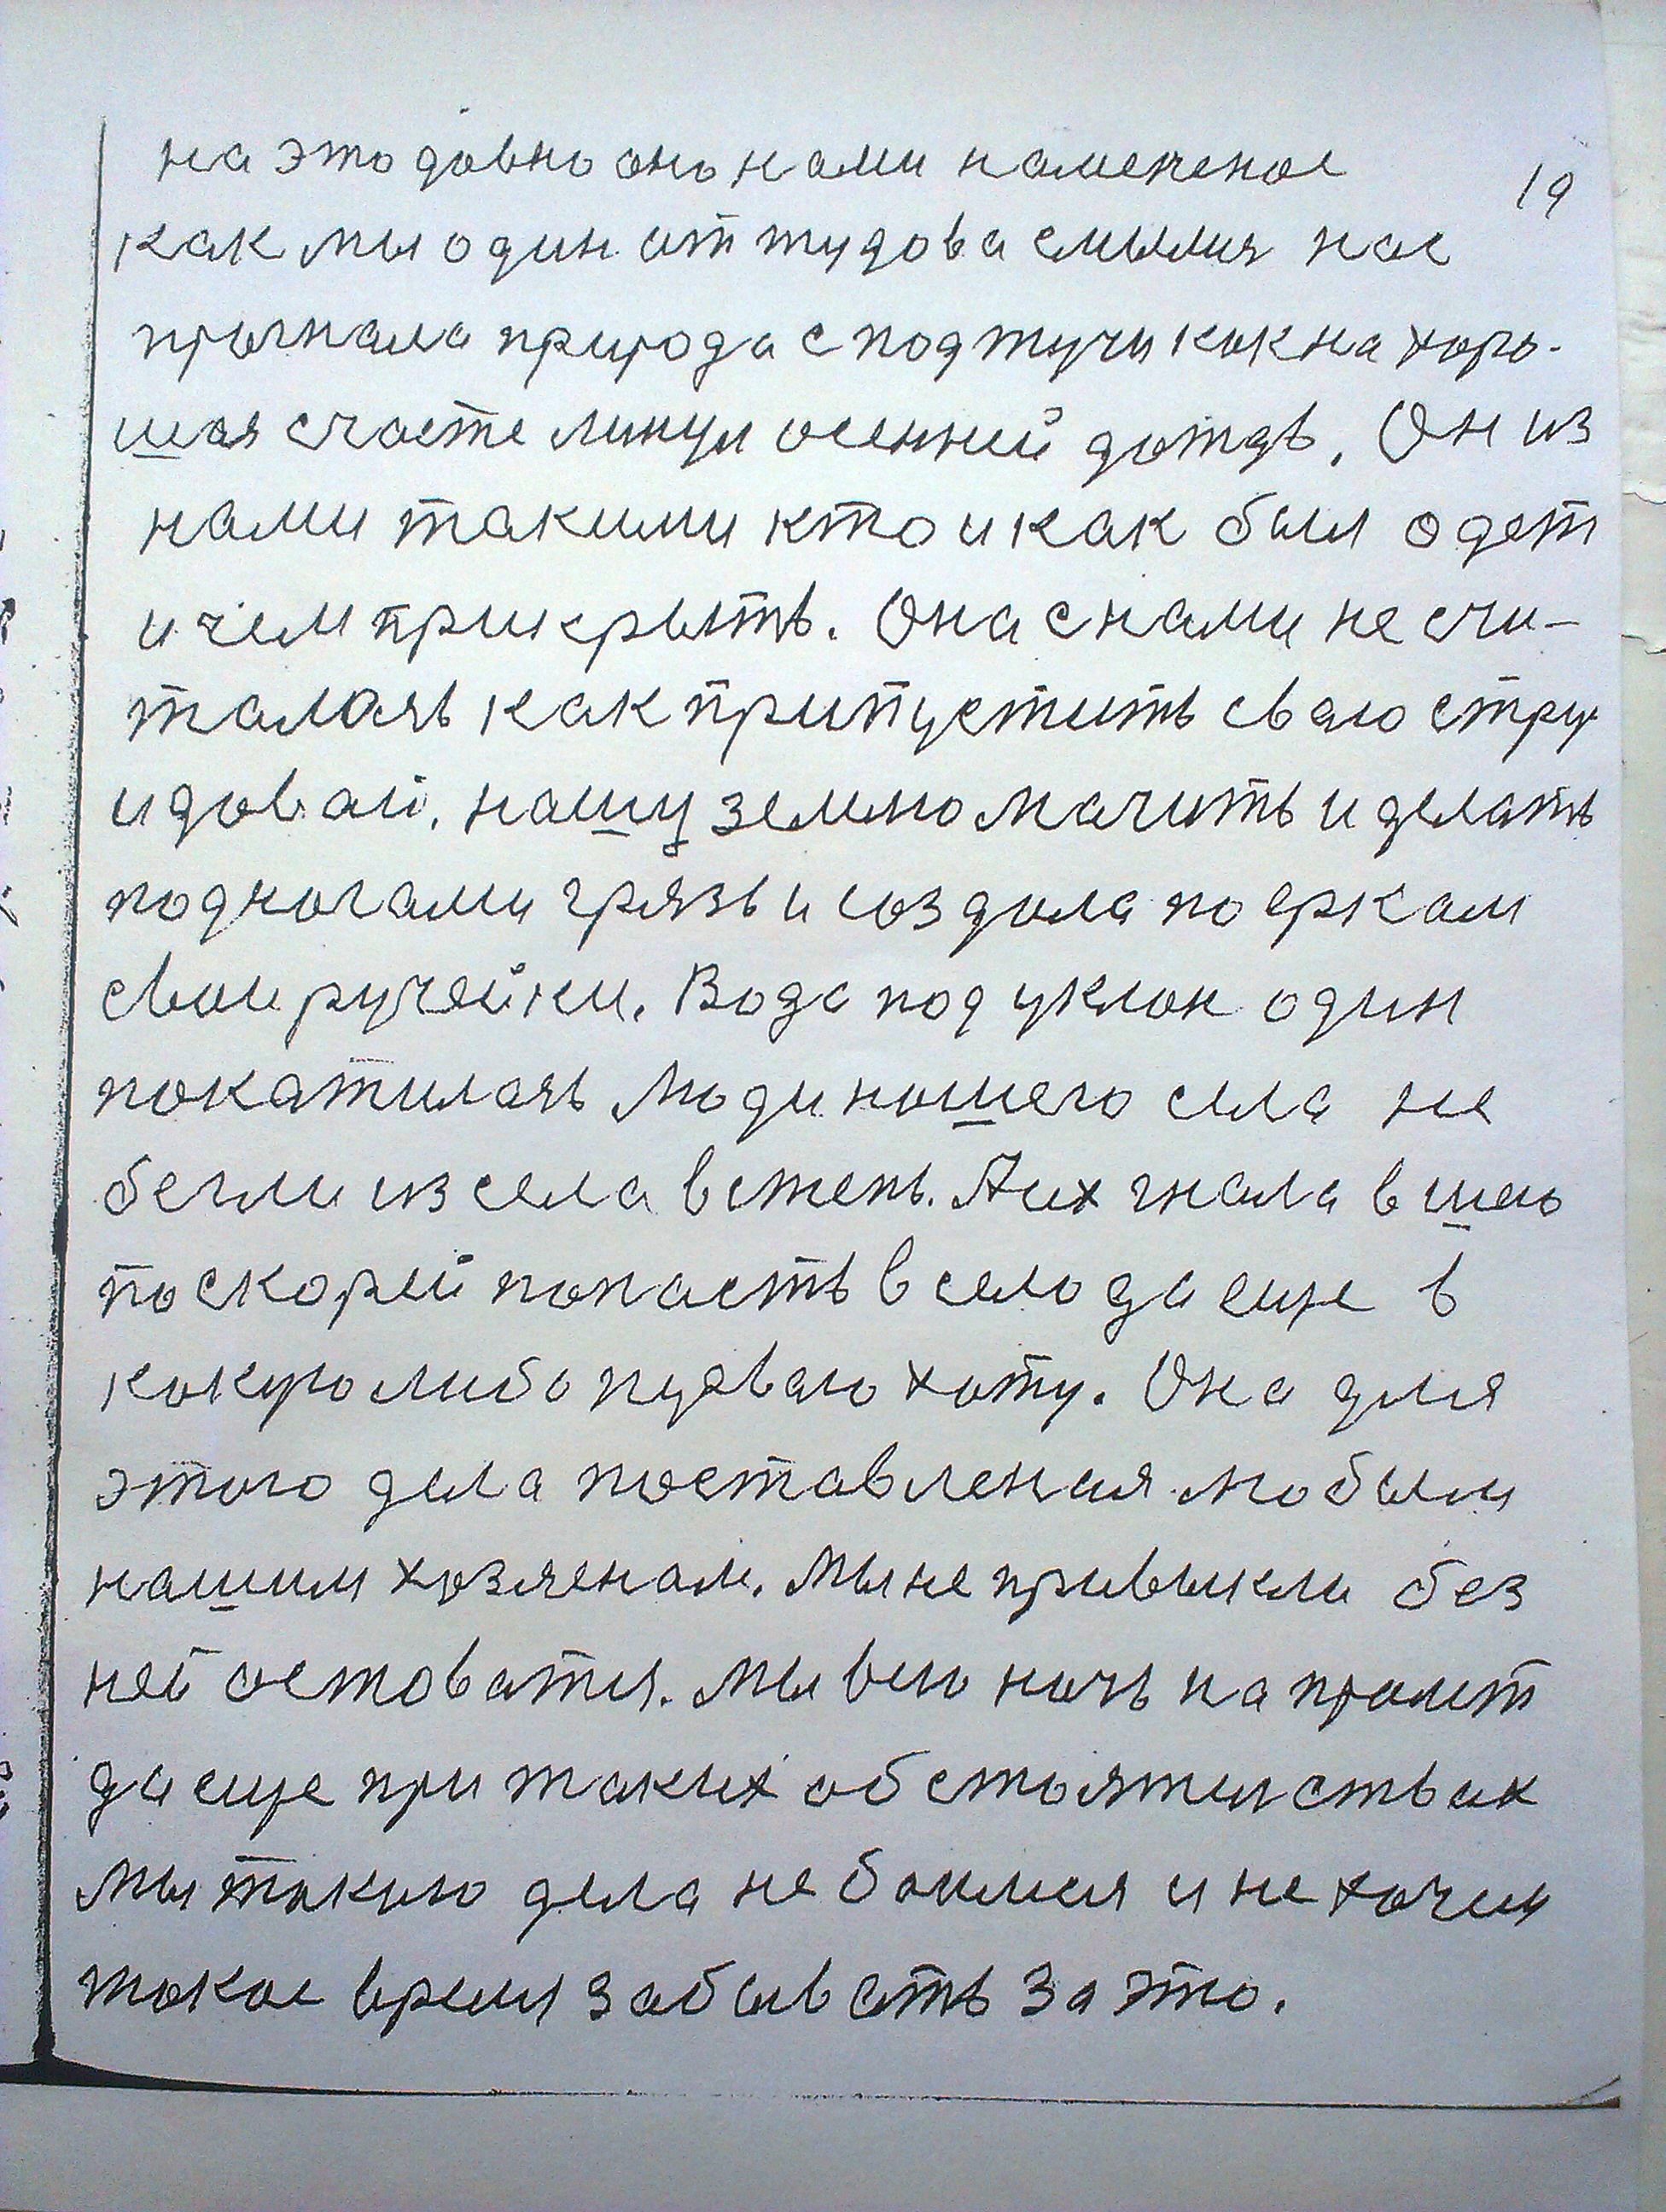 на это давно оно нами намеченое
19
как мы один от тудова смылия нас
прыгнала природа с под тучи как на хоро-
шая счасте линул осенней дождь. Он из
нами такими кто и как был одет
и чем прикрыть. Она с нами не счи-
талась как припустить сваю стру
и давай. нашу землю мачить и делать
под ногами грязь и создала по яркам
свои ручейки. Вода под уклон один
покатилась Люди нашего села не
бегли из села в степь. А их гнала в шею
поскорей попасть в село да еще в
какую либо пудваю хату. Она для
этого дела поставленая любым
нашим хозяенам. Мы не привыкли без
ней оставатся. Мы всю ночь на пролит
да еще при таких обстоятилствах
Мы такою дела не боимся и не хочим
такое время забывать за это.